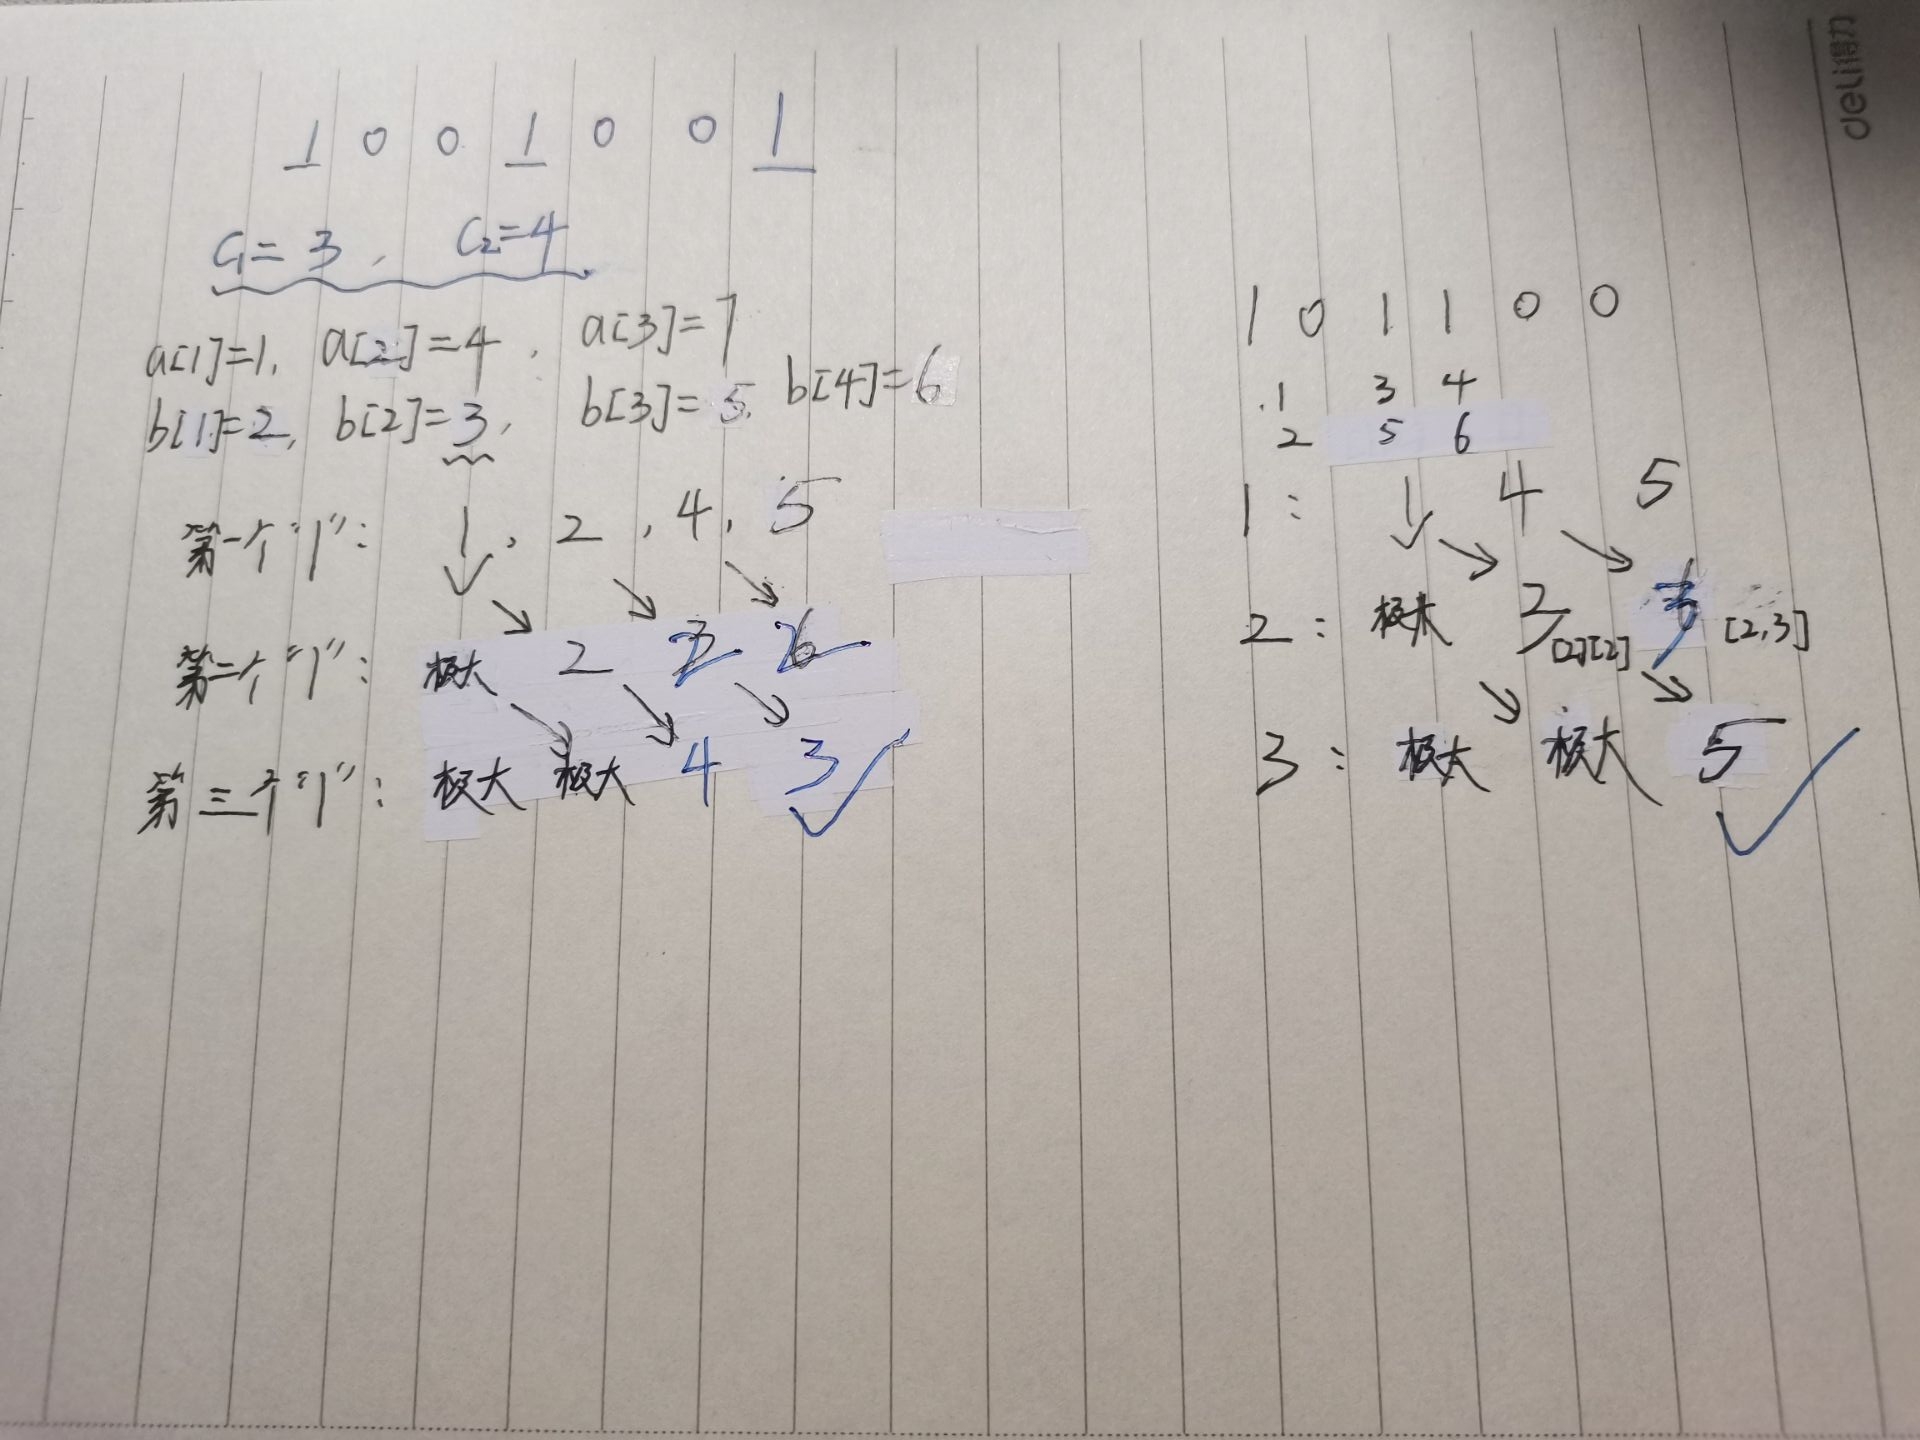 deli得力
1 0 0 1 0 0 1
C₁=3, C₂=4
a[1]=1, a[2]=4, a[3]=7
b[1]=2, b[2]=3, b[3]=5, b[4]=6
第一个"1": 1, 2, 4, 5
第二个"1": 极大 2 2
第三个"1": 极大 极大 4 3
1 0 1 1 0 0
1 3 4
2 5 6
1: 1 4 5
2: 极大 3 [2][2] [2,3]
3: 极大 极大 5